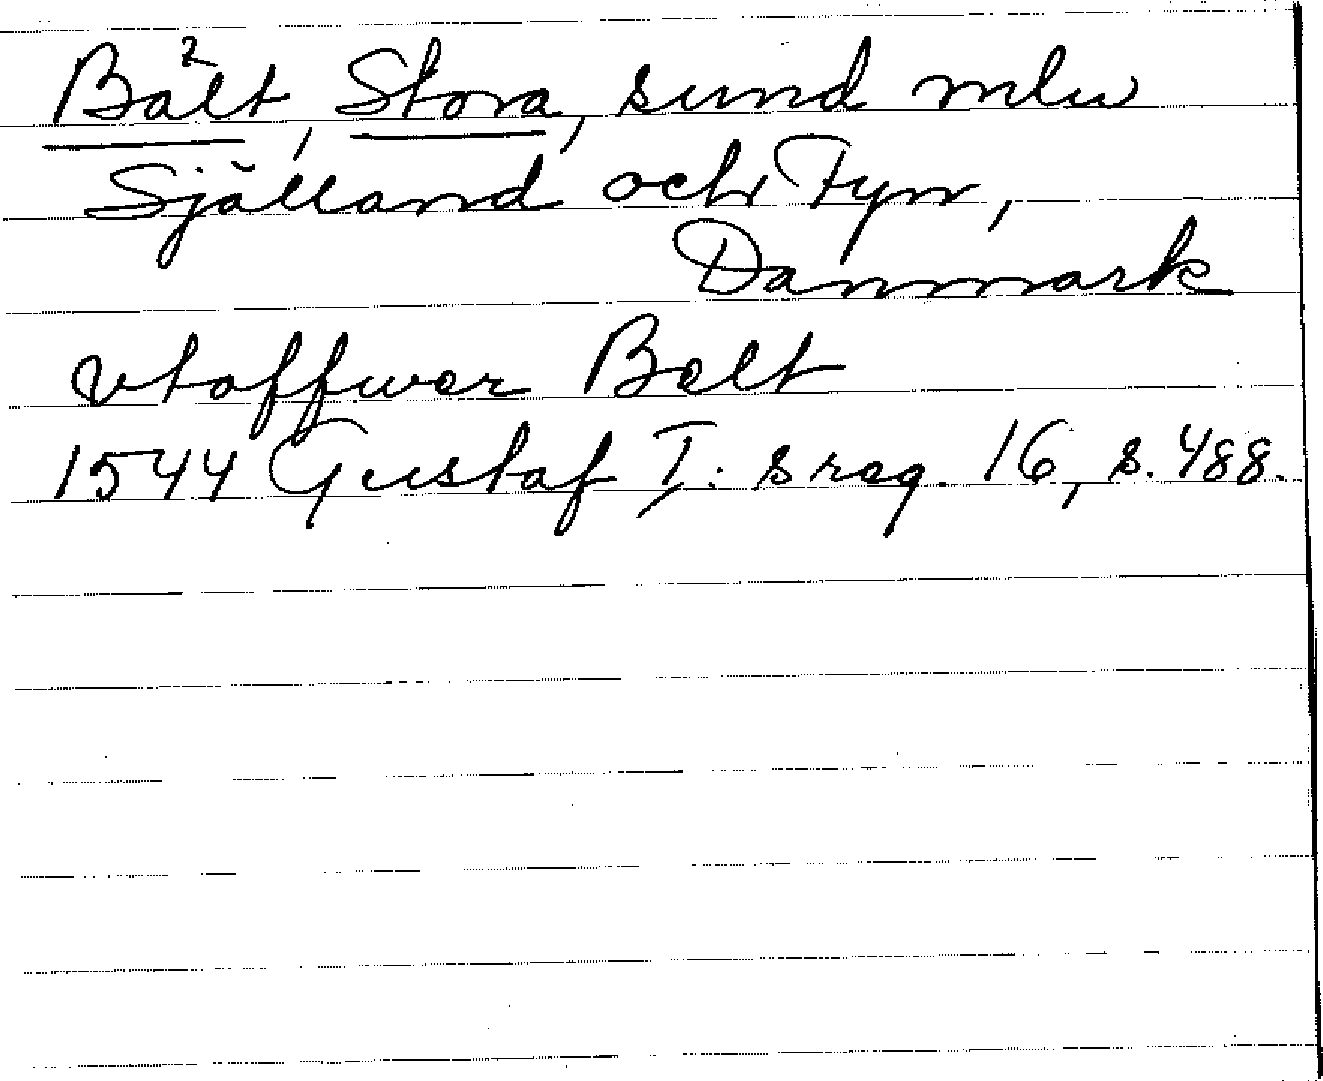 Bält, Stora, sund mlw
Själland och Fyn,
Danmark
vtoffwer Belt
1544 Gustaf I:s reg. 16, s. 488.